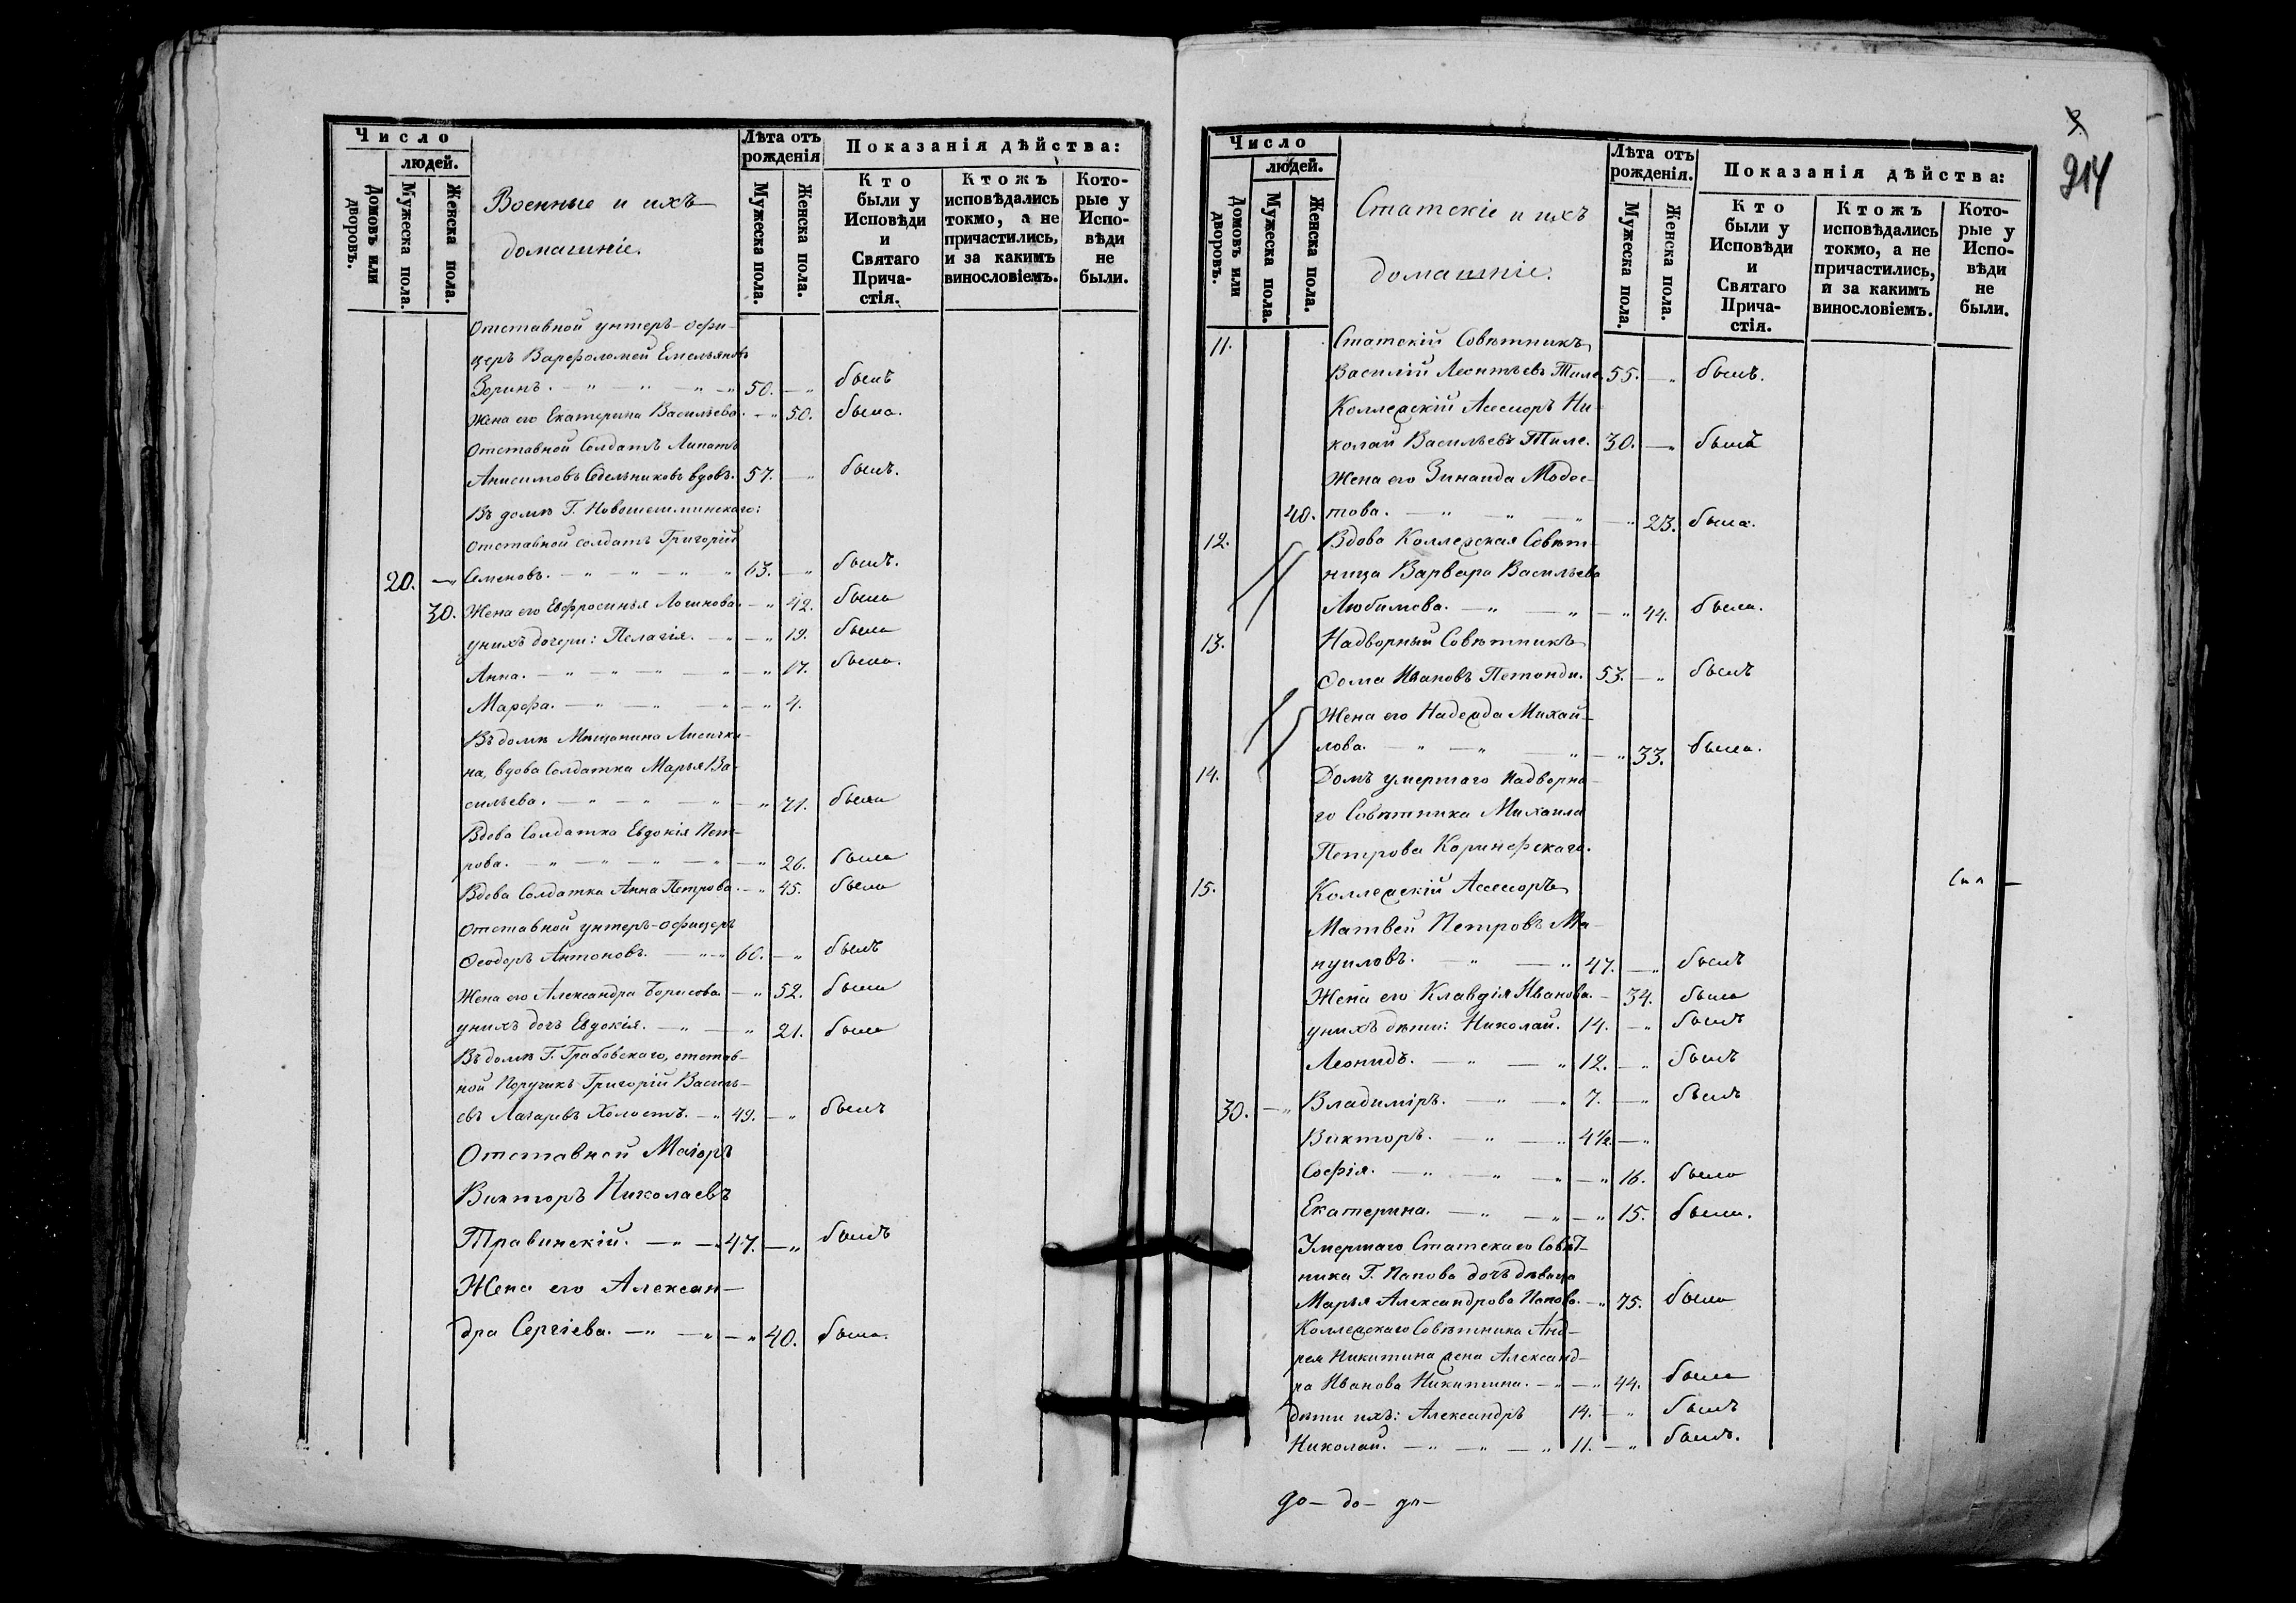 Число
людей.
Домовъ или дворовъ.
Мужеска пола.
Женска пола.
Военные и ихъ
домашніе.
Лѣта отъ рожденія
Мужеска пола.
Женска пола.
Показанія дѣйства:
Кто были у Исповѣди и Святаго Прича-стія.
Ктожъ исповѣдались токмо, а не причастились, и за какимъ винословіемъ.
Кото-рые у Испо-вѣди не были.
Отставной унтеръ-офи-
церъ Варфоломей Емельяновъ
Зоринъ. — „ — „ — „ — 50. — „ былъ
Жена его Екатерина Васильева. — „ 50. была.
Отставной Солдатъ Липатъ
Анисимовъ Седельниковъ вдовъ. 57. — „ былъ.
Въ домѣ Г. Новошешминскаго:
Отставной солдатъ Григорій
20. — „ Семеновъ. — „ — „ — „ — „ 63. — „ былъ.
30. Жена его Евфросинья Логинова. — „ 42. была
у нихъ дочери: Пелагія. — „ — „ 19. была
Анна. — „ — „ — „ — „ 17. была.
Марфа. — „ — „ — „ — „ 4.
Въ домѣ Мѣщанина Лисички-
на, вдова Солдатка Марья Ва-
сильева. — „ — „ — „ — „ 71. была
Вдова Солдатка Евдокія Пет-
рова. — „ — „ — „ — „ — „ 26. была
Вдова Солдатка Анна Петрова. — „ 45. была
Отставной унтеръ-офицеръ
Ѳеодоръ Антоновъ. — „ — 60. — „ былъ
Жена его Александра Борисова. — „ 52. была
у нихъ дочь Евдокія. — „ — „ 21. была
Въ домѣ Г. Грабовскаго, отстав-
ной Поручикъ Григорій Василь-
евъ Лагаревъ Холостъ. — „ 49. — „ былъ
Отставной Маіоръ
Викторъ Николаевъ
Травинскій. — „ — „ 47. — „ былъ
Жена его Алексан-
дра Сергіева. — „ — „ — „ 40. была.
9.
914
Число
людей.
Домовъ или дворовъ.
Мужеска пола.
Женска пола.
Статскіе и ихъ
домашніе.
Лѣта отъ рожденія.
Мужеска пола.
Женска пола.
Показанія дѣйства:
Кто были у Исповѣди и Святаго Прича-стія.
Ктожъ исповѣдались токмо, а не причастились, и за какимъ винословіемъ.
Кото-рые у Испо-вѣди не были.
11. Статскій Совѣтникъ
Василій Леонтьевъ Тиле. 55. — „ былъ.
Коллежскій Асессоръ Ни-
колай Васильевъ Тиле. 30. — „ былъ
Жена его Зинаида Модес-
40. това. — „ — „ — „ — „ 23. была.
12. Вдова Коллежская Совѣт-
ница Варвара Васильева
Любимова. — „ — „ — „ 44. была.
13. Надворный Совѣтникъ
Ѳома Ивановъ Петонди. 53. — „ былъ
Жена его Надежда Михай-
лова. — „ — „ — „ — „ 33. была.
14. Домъ умершаго Надворна-
го Совѣтника Михаила
Петрова Коринѳскаго.
15. Коллежскій Асессоръ
Матвей Петровъ Ма-
нуиловъ. — „ — „ 47. — „ былъ
Жена его Клавдія Иванова. — 34. была
у нихъ дѣти: Николай. 14. — „ былъ
Леонидъ. — „ — „ 12. — „ былъ
30. — „ Владиміръ. — „ — „ 7. — „ былъ
Викторъ. — „ — „ 4½. — „
Софія. — „ — „ — „ — „ 16. была
Екатерина. — „ — „ — „ 15. была.
Умершаго Статскаго Совѣт-
ника Г. Панова дочь дѣвица
Марья Александрова Панова. — „ 75. была
Коллежскаго Совѣтника Анд-
рея Никитина жена Александ-
ра Иванова Никитина. — „ — „ 44. была
дѣти ихъ: Александръ 14. — „ былъ
Николай. — „ — „ — „ 11. — „ былъ.
до — до — до —